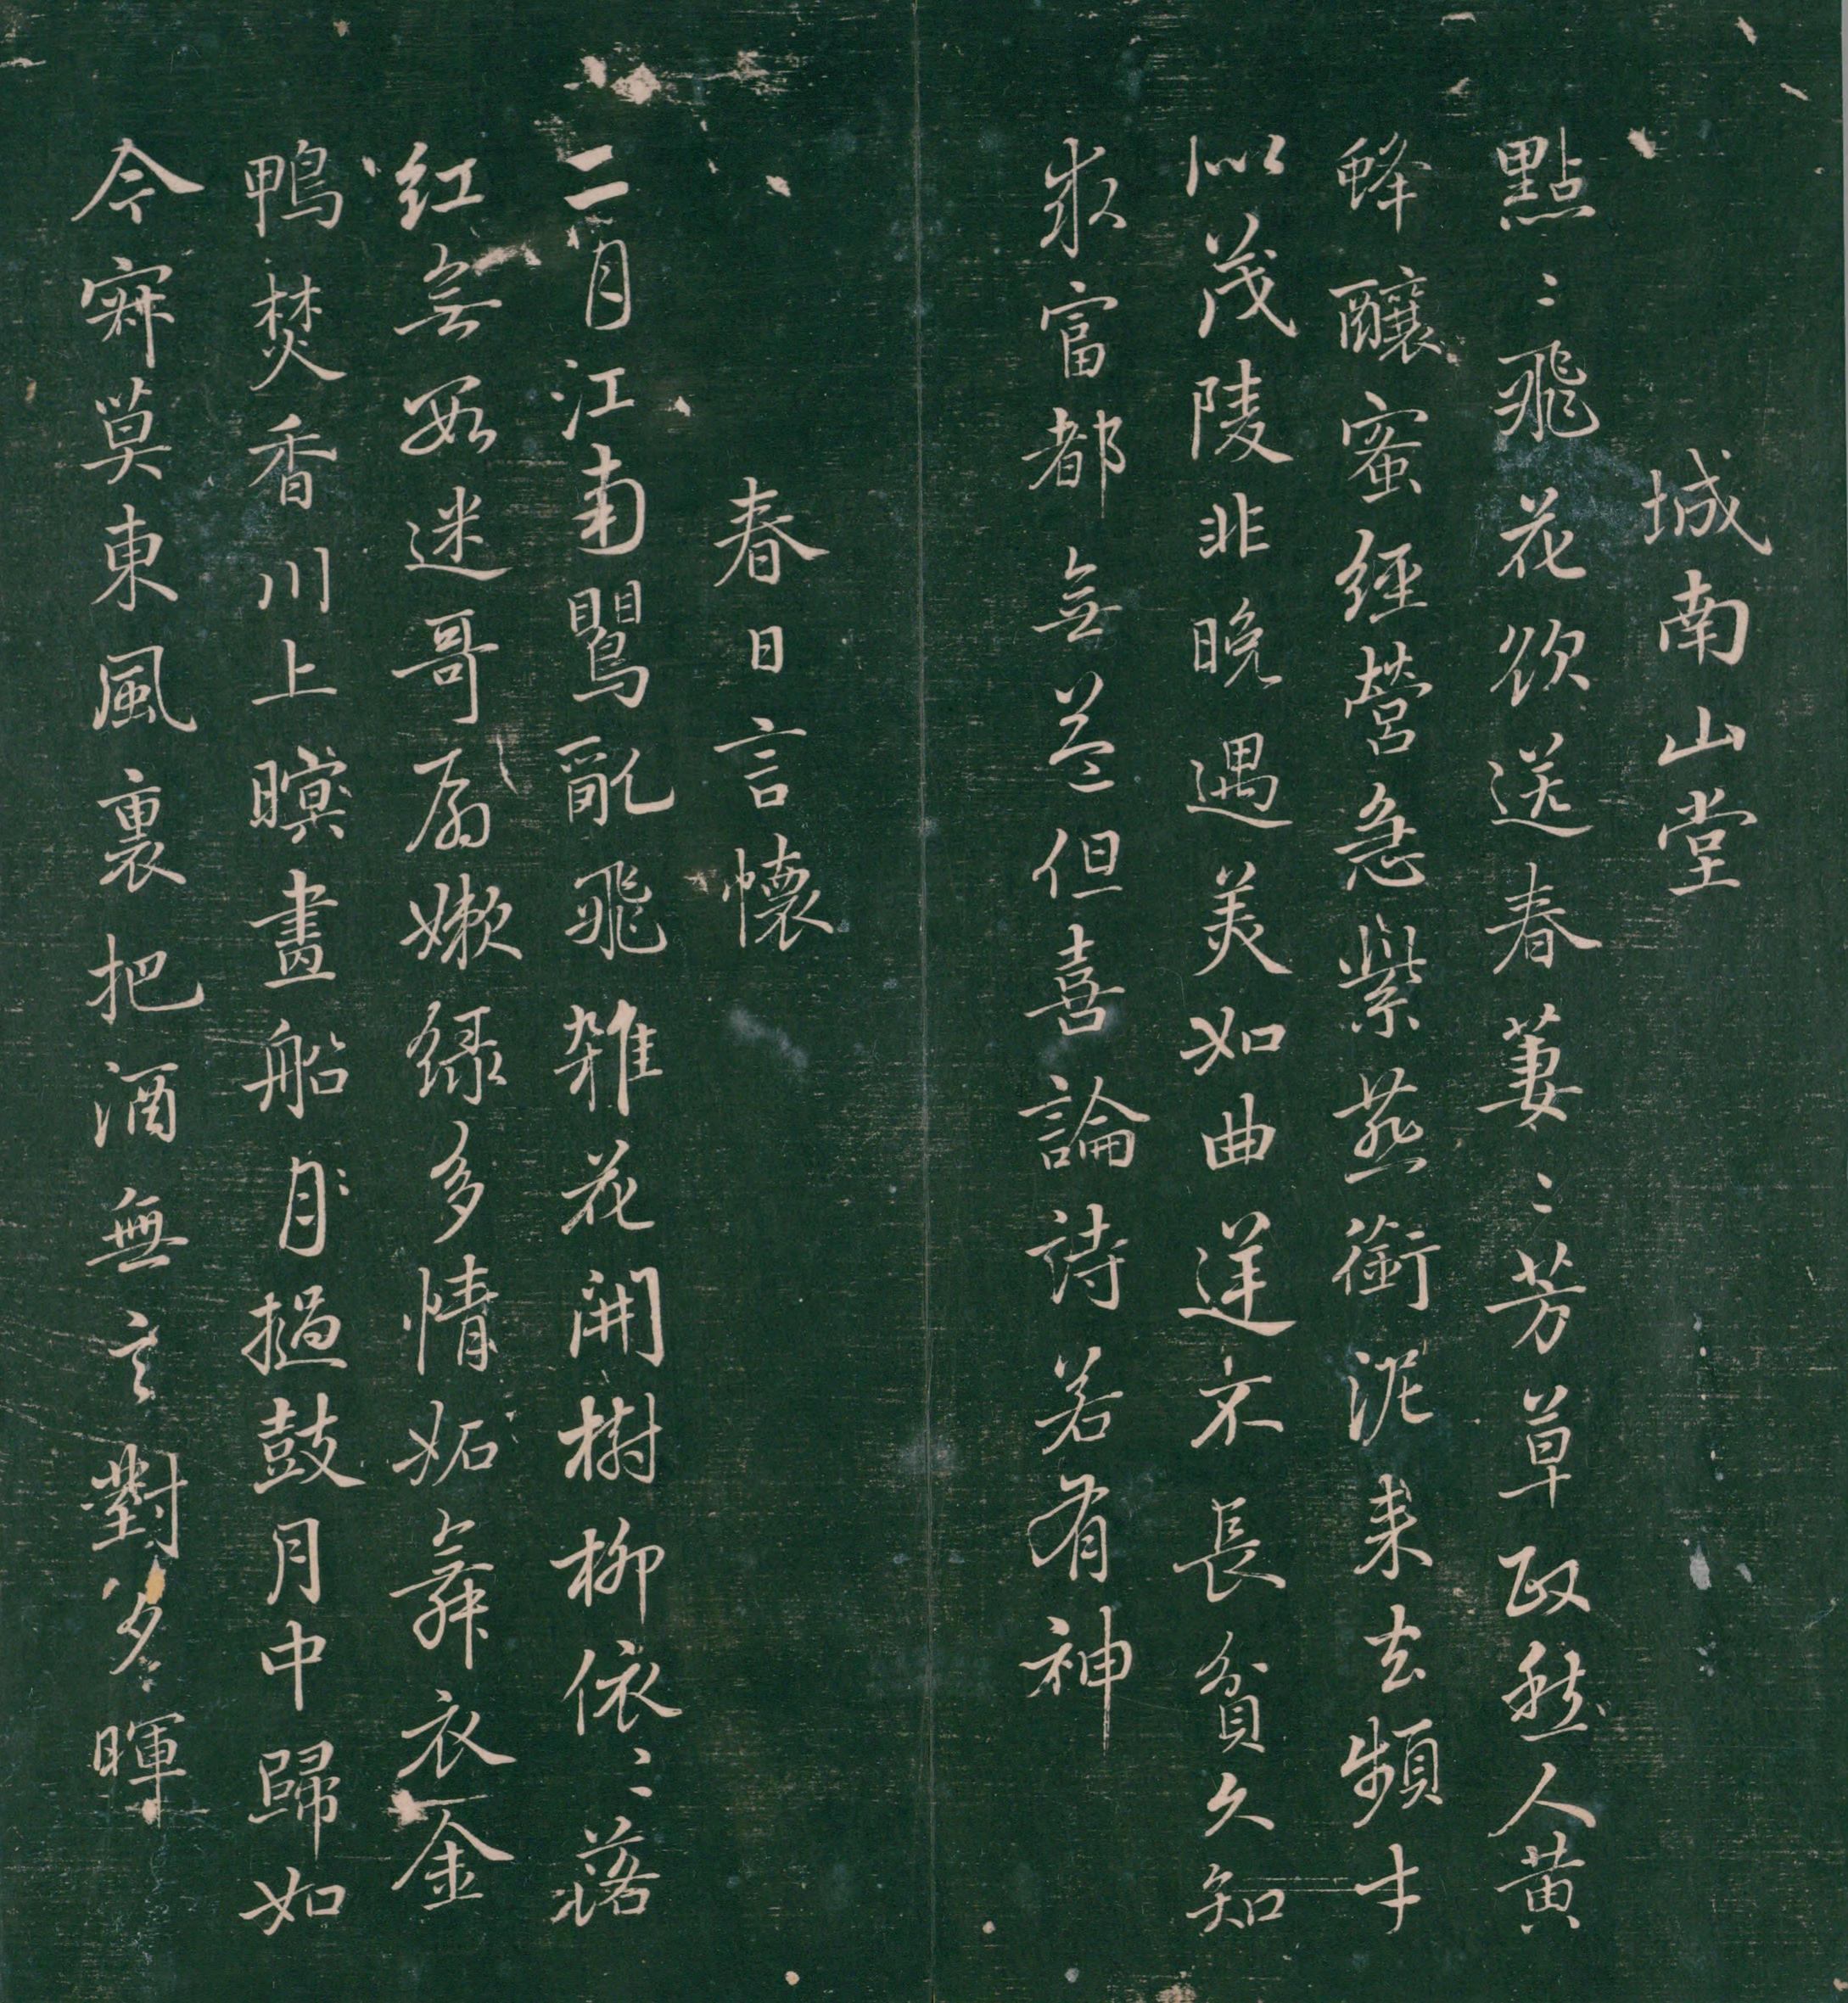 城南山堂
點〻飛花欲送春萋〻芳草政愁人黄
蜂釀蜜經營急紫燕銜泥来去頻才
似茂陵非晚遇美如曲逆不長貧久知
求富都無益但喜論詩若有神
春日言懷
二月江南鶯亂飛雜花開樹柳依〻落
红無數迷哥扇嫩緑多情妬舞衣金
鴨焚香川上暝畫船月撾鼓月中歸如
今寂莫東風裏把酒無言對夕暉